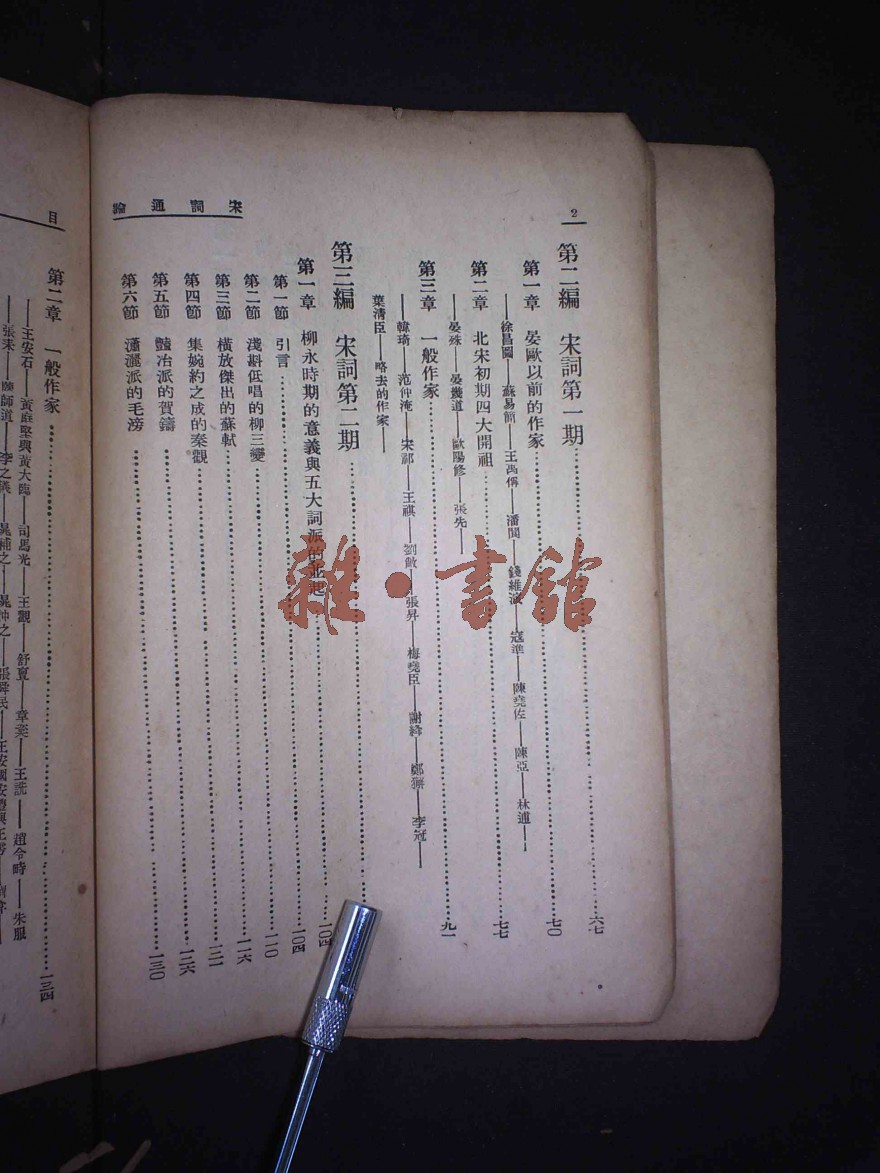 2
宋詞通論
第二編 宋詞第一期……六七
第一章 晏歐以前的作家……七〇
——徐昌圖——蘇易簡——王禹偁——潘閬——錢維演——寇準——陳堯佐——陳亞——林逋——
第二章 北宋初期四大開祖……七七
——晏殊——晏幾道——歐陽修——張先——
第三章 一般作家……九一
——韓琦——范仲淹——宋祁——王祺——劉敞——張昇——梅堯臣——謝絳——鄭獬——李冠——
葉清臣——略去的作家——
第三編 宋詞第二期……
第一章 柳永時期的意義與五大詞派的並起……一〇四
第一節 引言……一〇四
第二節 淺斟低唱的柳三變……一一〇
第三節 橫放傑出的蘇軾……一一六
第四節 集婉約之成的秦觀……一二一
第五節 豔冶派的賀鑄……一二六
第六節 瀟灑派的毛滂……一三〇
目
第二章 一般作家……一三四
——王安石——黃庭堅與黃大臨——司馬光——王觀——舒亶——章楶——王詵——趙令畤——朱服
——張耒——陳師道——李之儀——晁補之——晁沖之——張舜民——王安國安禮與王雱——
雜·書館